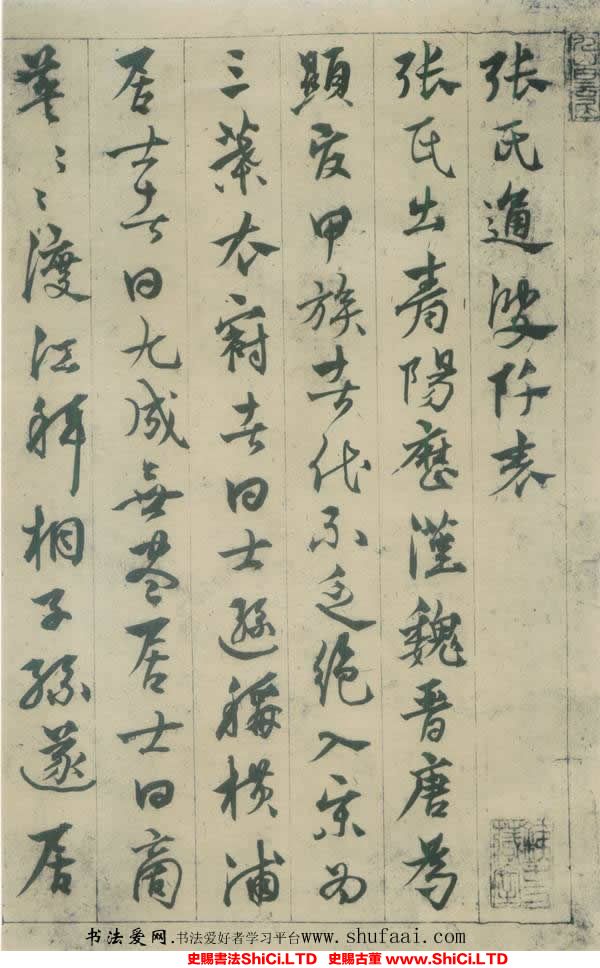 張氏通波阡表
張氏出青陽歷漢魏晉唐為
顯官甲族者代不乏絕入宋而
三葉衣冠者曰士遜稱橫浦
居士者曰九成無盡居士曰商
英英之渡江拜相子孫遂居
书法爱网.书法爱好者学习平台www.shufaai.com
史賜書法ShiCi.LTD 史賜古董 www.ShiCi.LTD